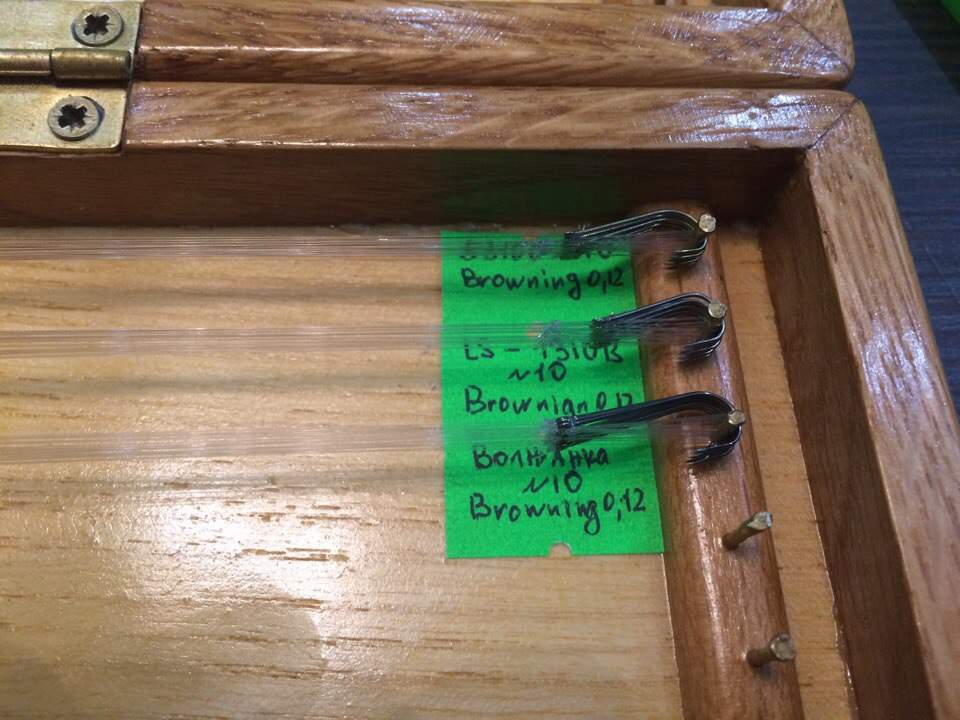 Browning 0,12
LS -
N10
Brownign 0,12
Волжанка
N10
Browning 0,12